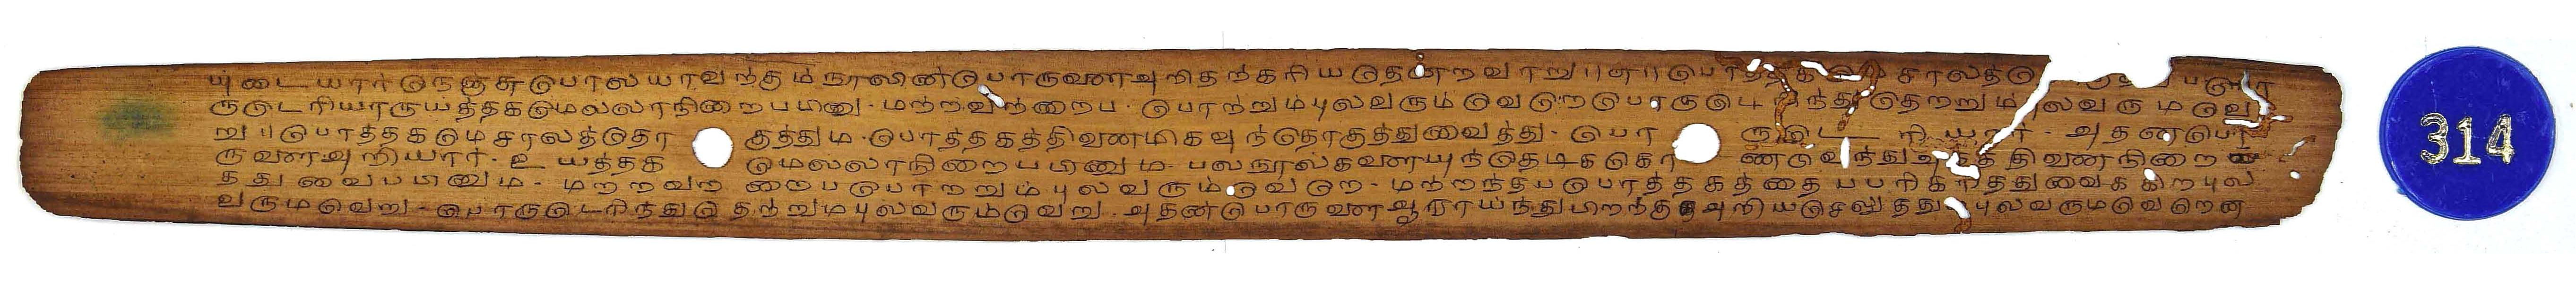 புடையார் நெஞ்சுபோல யாவர்க்கும்நூலின்பொருளைஅறிதற்கரியதென்றவாறு ॥அ॥ பொத்தக சாலத்தொ
ருடெரியாருயத்தகமெலலாநிறைபபினு - மற்றவற்றைப - போற்றும்புலவரும்வேறேபொருடெரிந்துதேற்றும் புலவருமவே
று ॥ பொத்தகமெசாலத்தொகுத்தும - பொத்தகத்தினைமிகவுந்தொகுத்துவைத்து - பொருடெரியார் - அதன்பொ
ருளைஅறியார் - உயத்தகமெல்லாநிறைபபினும - பலநூல்களையுந்தேடிககொண்டுவந்துஅகத்தினைநிறை
த்துவைபபினும - மறறவறறைபபோறறும்புலவரும்வேறே - மற்றந்தபபொத்தகத்தைபபரிகரித்துவைககிறபுல
வருமவேறு - பொருடெரிந்துதேற்றும்புலவரும்வேறு - அதன்பொருளைஆராய்ந்துபிறர்க்குஅறியசெலுத்தும்புலவருமவேறென
314